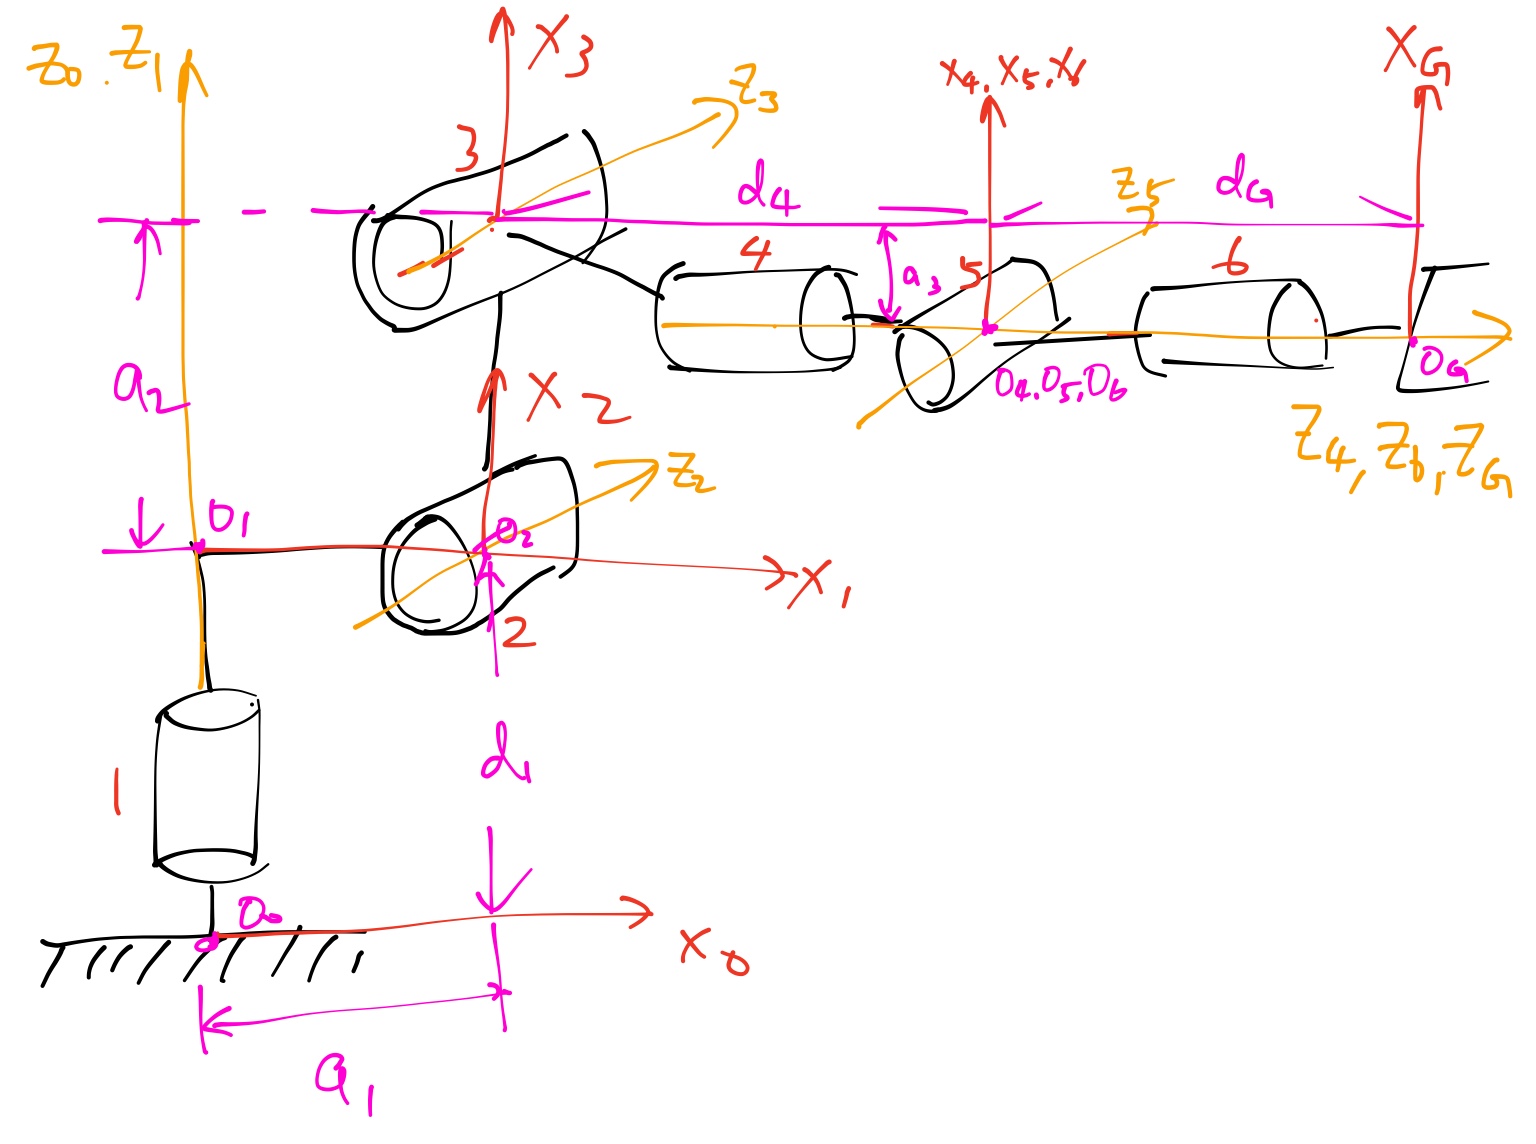 Z0.Z1
X3
Z3
X4.X5.X6
XG
3
d4
Z5
dG
4
a3
5
6
a2
X2
O4.O5.O6
OG
Z4,Z6,ZG
Z2
O1
O2
X1
2
d1
1
O0
X0
a1